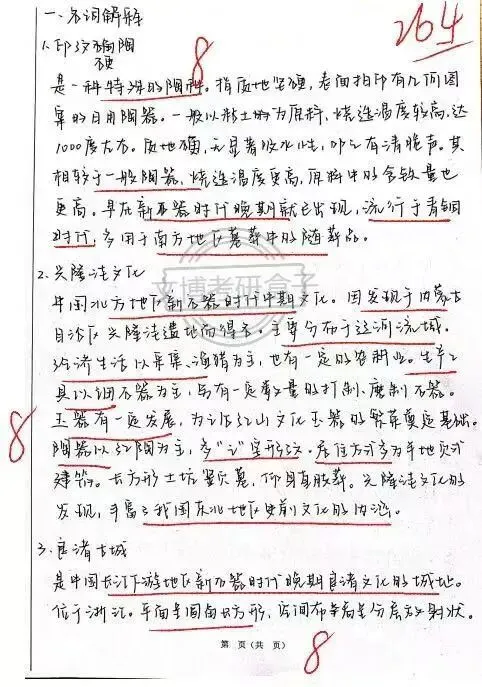 264
一、名词解释
1.印纹硬陶
硬
8
是一种特殊的陶种。指质地坚硬,表面拍印有几何图
案的日用陶器。一般以粘土为原料,烧造温度较高,达
1000度左右。质地硬,无显著吸水性,叩之有清脆声。其
相较于一般陶器,烧造温度更高,原料中的含铁量也
更高。早在新石器时代晚期就已出现,流行于青铜
时代,多用于南方地区墓葬中的随葬品。
文博考研盒子
2.兴隆洼文化
中国北方地区新石器时代中期文化。因发现于内蒙古
自治区兴隆洼遗址而得名。主要分布于辽河流域。
经济生活以采集、渔猎为主,也有一定的农耕业。生产工
具以细石器为主,另有一定数量的打制、磨制石器。
玉器有一定发展,为之后红山文化玉器的繁荣奠定基础。
8
陶器以红陶为主,多“之”字形纹。居住方式多为半地穴式
建筑。长方形土坑竖穴墓,仰身直肢葬。兴隆洼文化的
发现,丰富了我国东北地区史前文化的内涵。
3.良渚古城
是中国长江下游地区新石器时代晚期良渚文化的城址。
位于浙江。平面呈圆角长方形,空间布局呈分层放射状。
第 页(共 页)
8